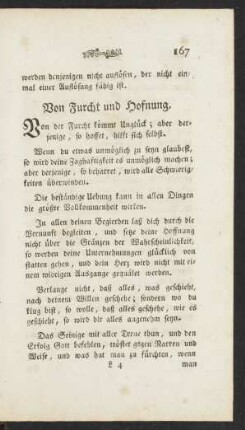 167
werden denjenigen nicht auflösen, der nicht ein-
mal einer Auflösung fähig ist.
Von Furcht und Hofnung.
Von der Furcht kömmt Unglück; aber der-
jenige, so hoffet, hilft sich selbst.
Wenn du etwas unmöglich zu seyn glaubest,
so wird deine Zaghaftigkeit es unmöglich machen;
aber derjenige, so beharret, wird alle Schwierig-
keiten überwinden.
Die beständige Uebung kann in allen Dingen
die größte Vollkommenheit wirken.
In allen deinen Begierden laß dich durch die
Vernunft begleiten, und setze deine Hoffnung
nicht über die Gränzen der Wahrscheinlichkeit,
so werden deine Unternehmungen glücklich von
statten gehen, und dein Herz wird nicht mit ei-
nem widrigen Ausgange gequälet werden.
Verlange nicht, daß alles, was geschieht,
nach deinem Willen geschehe; sondern wo du
klug bist, so wolle, daß alles geschehe, wie
es geschieht, so wird dir alles angenehm seyn.
Das Seinige mit aller Treue thun, und den
Erfolg Gott befehlen, tröstet gegen Narren und
Weise, und was hat man zu fürchten, wenn
L 4 man